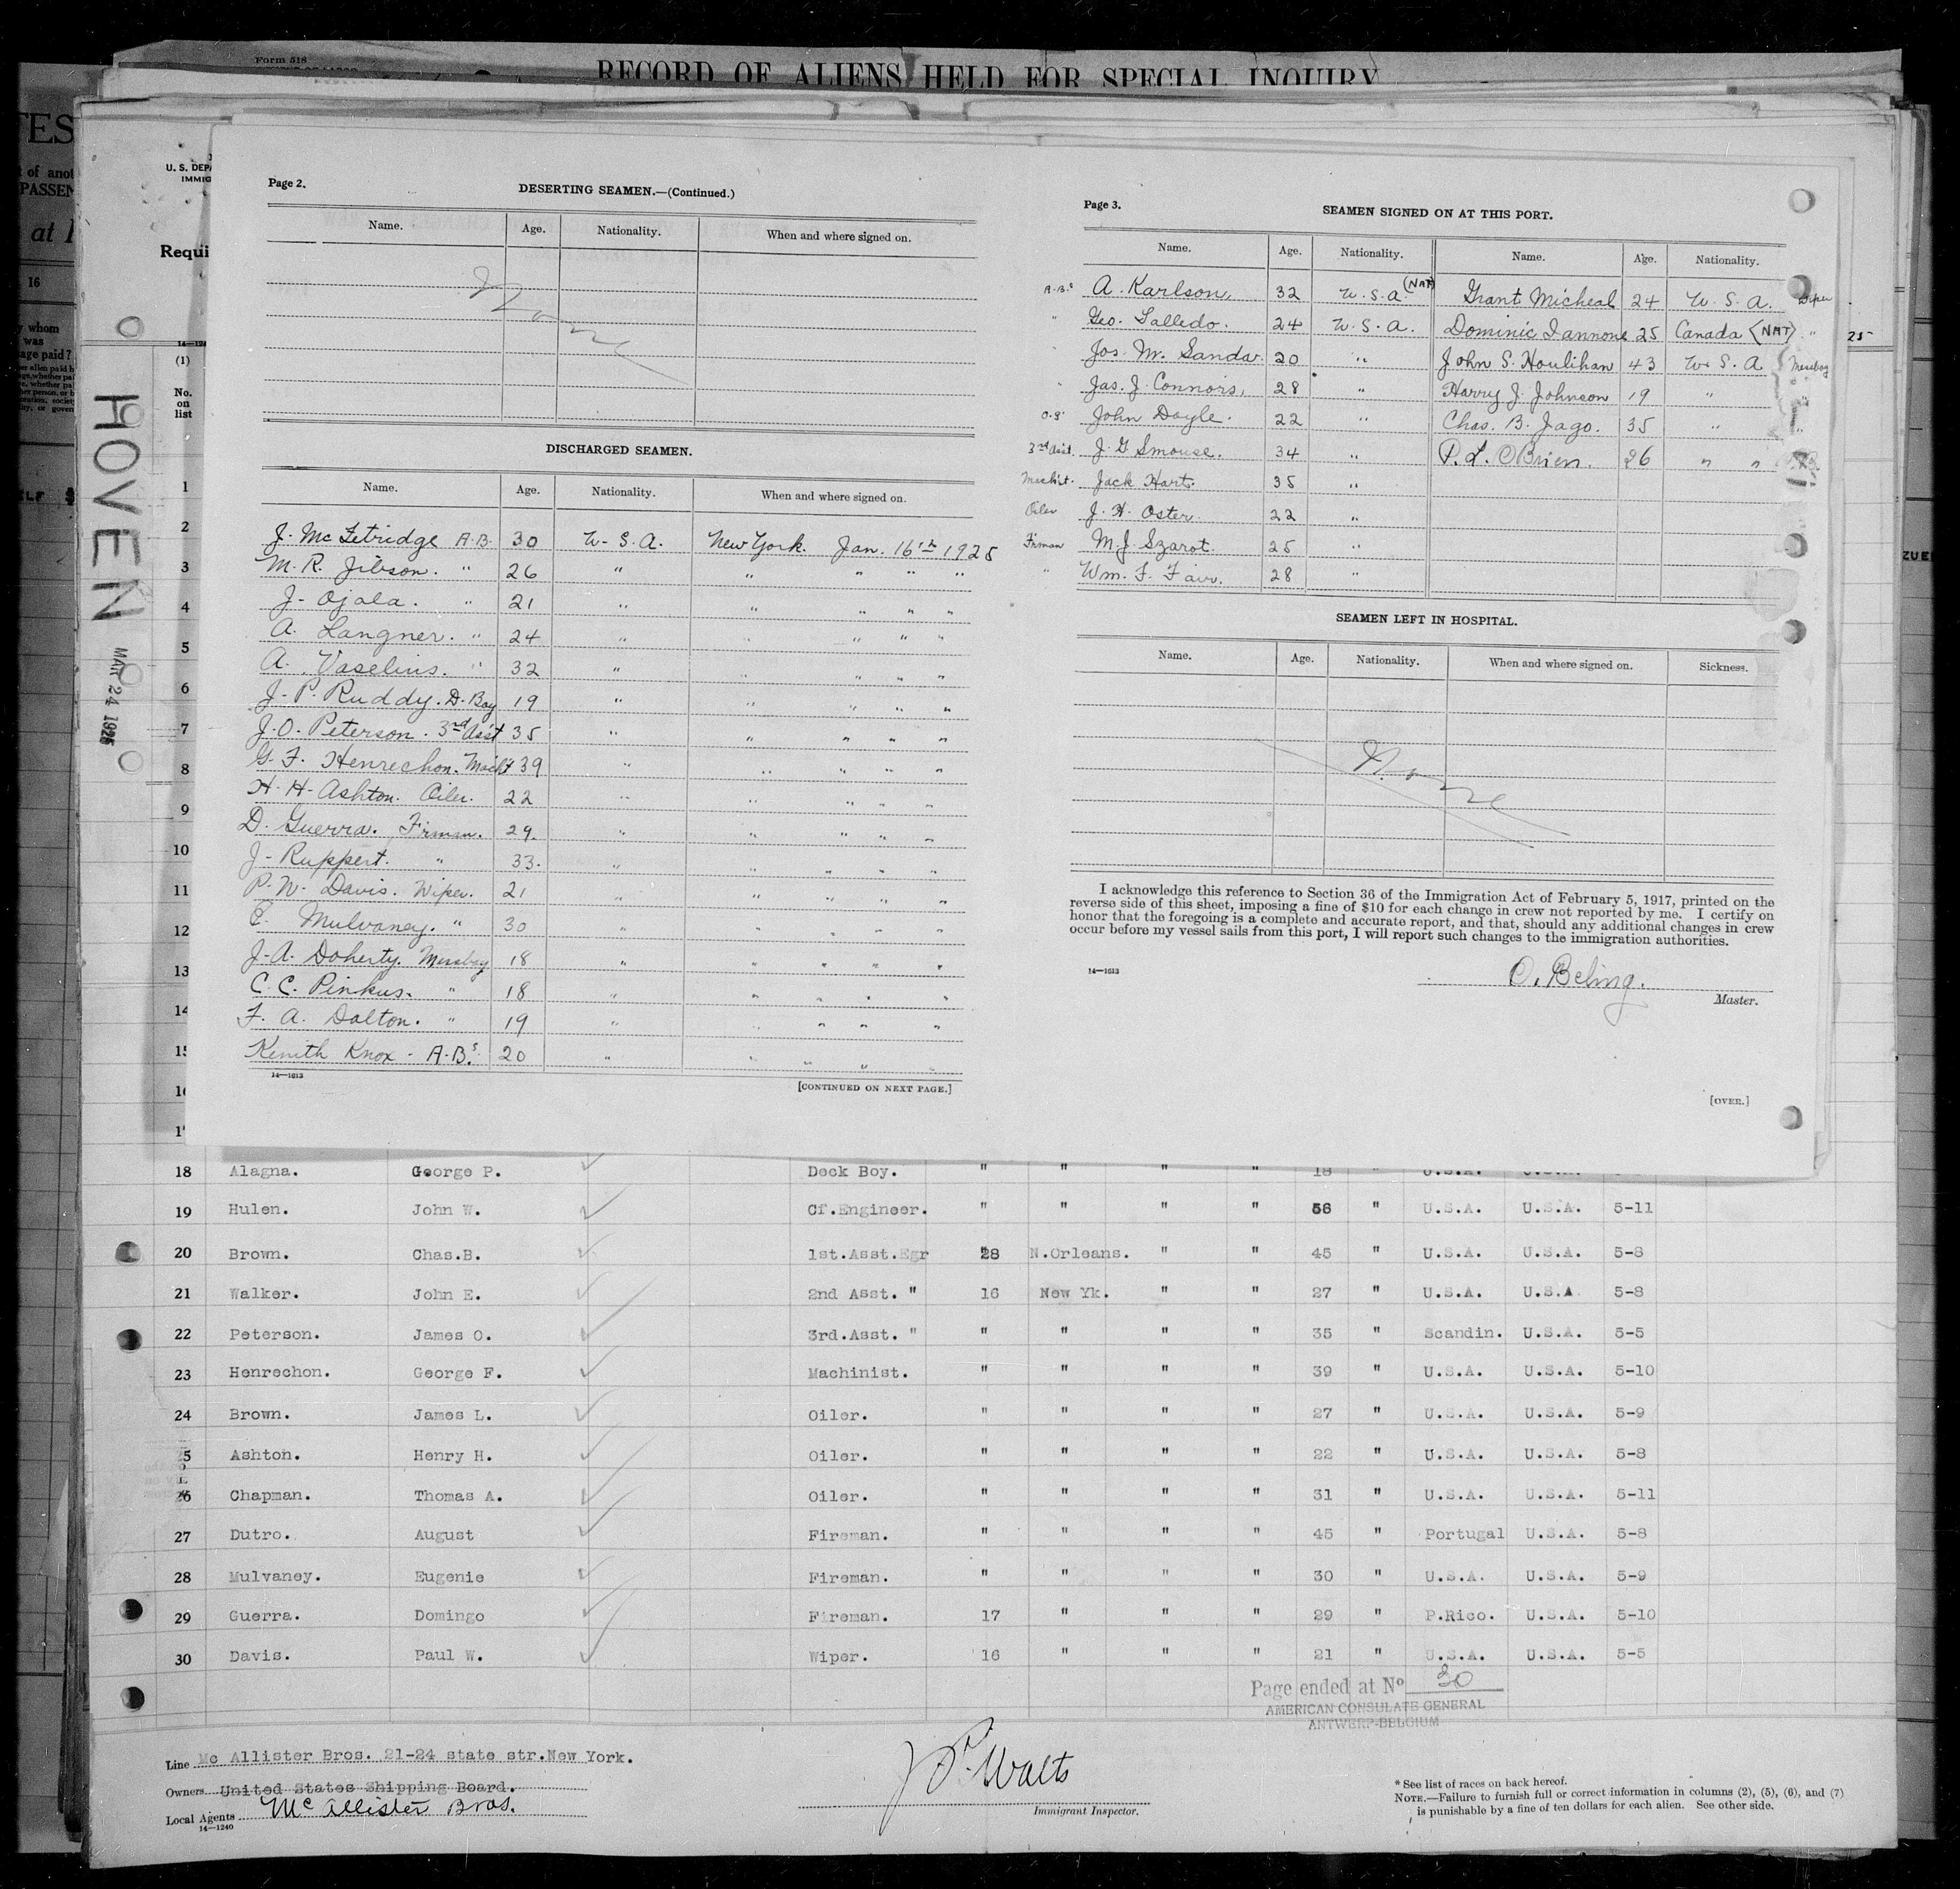 Form 518
RECORD OF ALIENS HELD FOR SPECIAL INQUIRY
U. S. DEPA
IMMIG
Requi
(1)
No.
on
list
HOVEN
MAR 24 1925
Page 2.
DESERTING SEAMEN.—(Continued.)
Name. Age. Nationality. When and where signed on.
None
DISCHARGED SEAMEN.
Name. Age. Nationality. When and where signed on.
J. McFetridge A.B. 30 U.S.A. New York. Jan. 16th 1925
M. R. Jibson. " 26 " " " " "
J. Ojala. " 21 " " " " "
A. Langner. " 24 " " " " "
A. Vaselius. " 32 " " " " "
J. P. Ruddy. D. Boy 19 " " " " "
J. O. Peterson. 3rd Asst 35 " " " " "
G. F. Henrechon. Macht 39 " " " " "
H. H. Ashton. Oiler. 22 " " " " "
D. Guerra. Firman. 29. " " " " "
J. Ruppert. " 33. " " " " "
P. W. Davis. Wiper. 21 " " " " "
E. Mulvaney. " 30 " " " " "
J. A. Doherty. Messboy 18 " " " " "
C. C. Pinkus. " 18 " " " " "
F. A. Dalton. " 19 " " " " "
Kenith Knox - A.B.s 20 " " " " "
14—1613
[CONTINUED ON NEXT PAGE.]
Page 3.
SEAMEN SIGNED ON AT THIS PORT.
Name. Age. Nationality. Name. Age. Nationality.
A.B.s A. Karlson, 32 U.S.A. (NAT) Grant Micheal 24 U.S.A. Wiper
" Geo. Salledo. 24 U.S.A. Dominic Iannone 25 Canada (NAT) "
" Jos. M. Sandar. 20 " John S. Houlihan 43 U.S.A. Messboy
" Jas. J. Connors, 28 " Harry J. Johnson 19 " "
O.S. John Doyle. 22 " Chas. B. Jago. 35 " "
3rd Asst. J. G. Smouse. 34 " P. L. O'Brien. 26 " "
Machist. Jack Hart. 35 "
Oiler J. H. Oster. 22 "
Firman M. J. Szarot. 25 "
" Wm. F. Fair. 28 "
SEAMEN LEFT IN HOSPITAL.
Name. Age. Nationality. When and where signed on. Sickness.
None
I acknowledge this reference to Section 36 of the Immigration Act of February 5, 1917, printed on the
reverse side of this sheet, imposing a fine of $10 for each change in crew not reported by me. I certify on
honor that the foregoing is a complete and accurate report, and that, should any additional changes in crew
occur before my vessel sails from this port, I will report such changes to the immigration authorities.
14—1613
O. Beling.
Master.
[OVER.]
18 Alagna. George P. Deck Boy. " " " " 18 " U.S.A. U.S.A.
19 Hulen. John W. Cf.Engineer. " " " " 56 " U.S.A. U.S.A. 5-11
20 Brown. Chas.B. 1st.Asst.Egr 28 N.Orleans. " " 45 " U.S.A. U.S.A. 5-8
21 Walker. John E. 2nd Asst. " 16 New Yk. " " 27 " U.S.A. U.S.A 5-8
22 Peterson. James O. 3rd.Asst. " " " " " 35 " Scandin. U.S.A. 5-5
23 Henrechon. George F. Machinist. " " " " 39 " U.S.A. U.S.A. 5-10
24 Brown. James L. Oiler. " " " " 27 " U.S.A. U.S.A. 5-9
25 Ashton. Henry H. Oiler. " " " " 22 " U.S.A. U.S.A. 5-8
26 Chapman. Thomas A. Oiler. " " " " 31 " U.S.A. U.S.A. 5-11
27 Dutro. August Fireman. " " " " 45 " Portugal U.S.A. 5-8
28 Mulvaney. Eugenie Fireman. " " " " 30 " U.S.A. U.S.A. 5-9
29 Guerra. Domingo Fireman. 17 " " " 29 " P.Rico. U.S.A. 5-10
30 Davis. Paul W. Wiper. 16 " " " 21 " U.S.A. U.S.A. 5-5
Page ended at No 30
AMERICAN CONSULATE GENERAL
ANTWERP-BELGIUM
Line Mc Allister Bros. 21-24 state str.New York.
Owners United States Shipping Board.
Local Agents Mc Allister Bros.
14—1240
J P. Walts
Immigrant Inspector.
* See list of races on back hereof.
NOTE.—Failure to furnish full or correct information in columns (2), (5), (6), and (7)
is punishable by a fine of ten dollars for each alien. See other side.